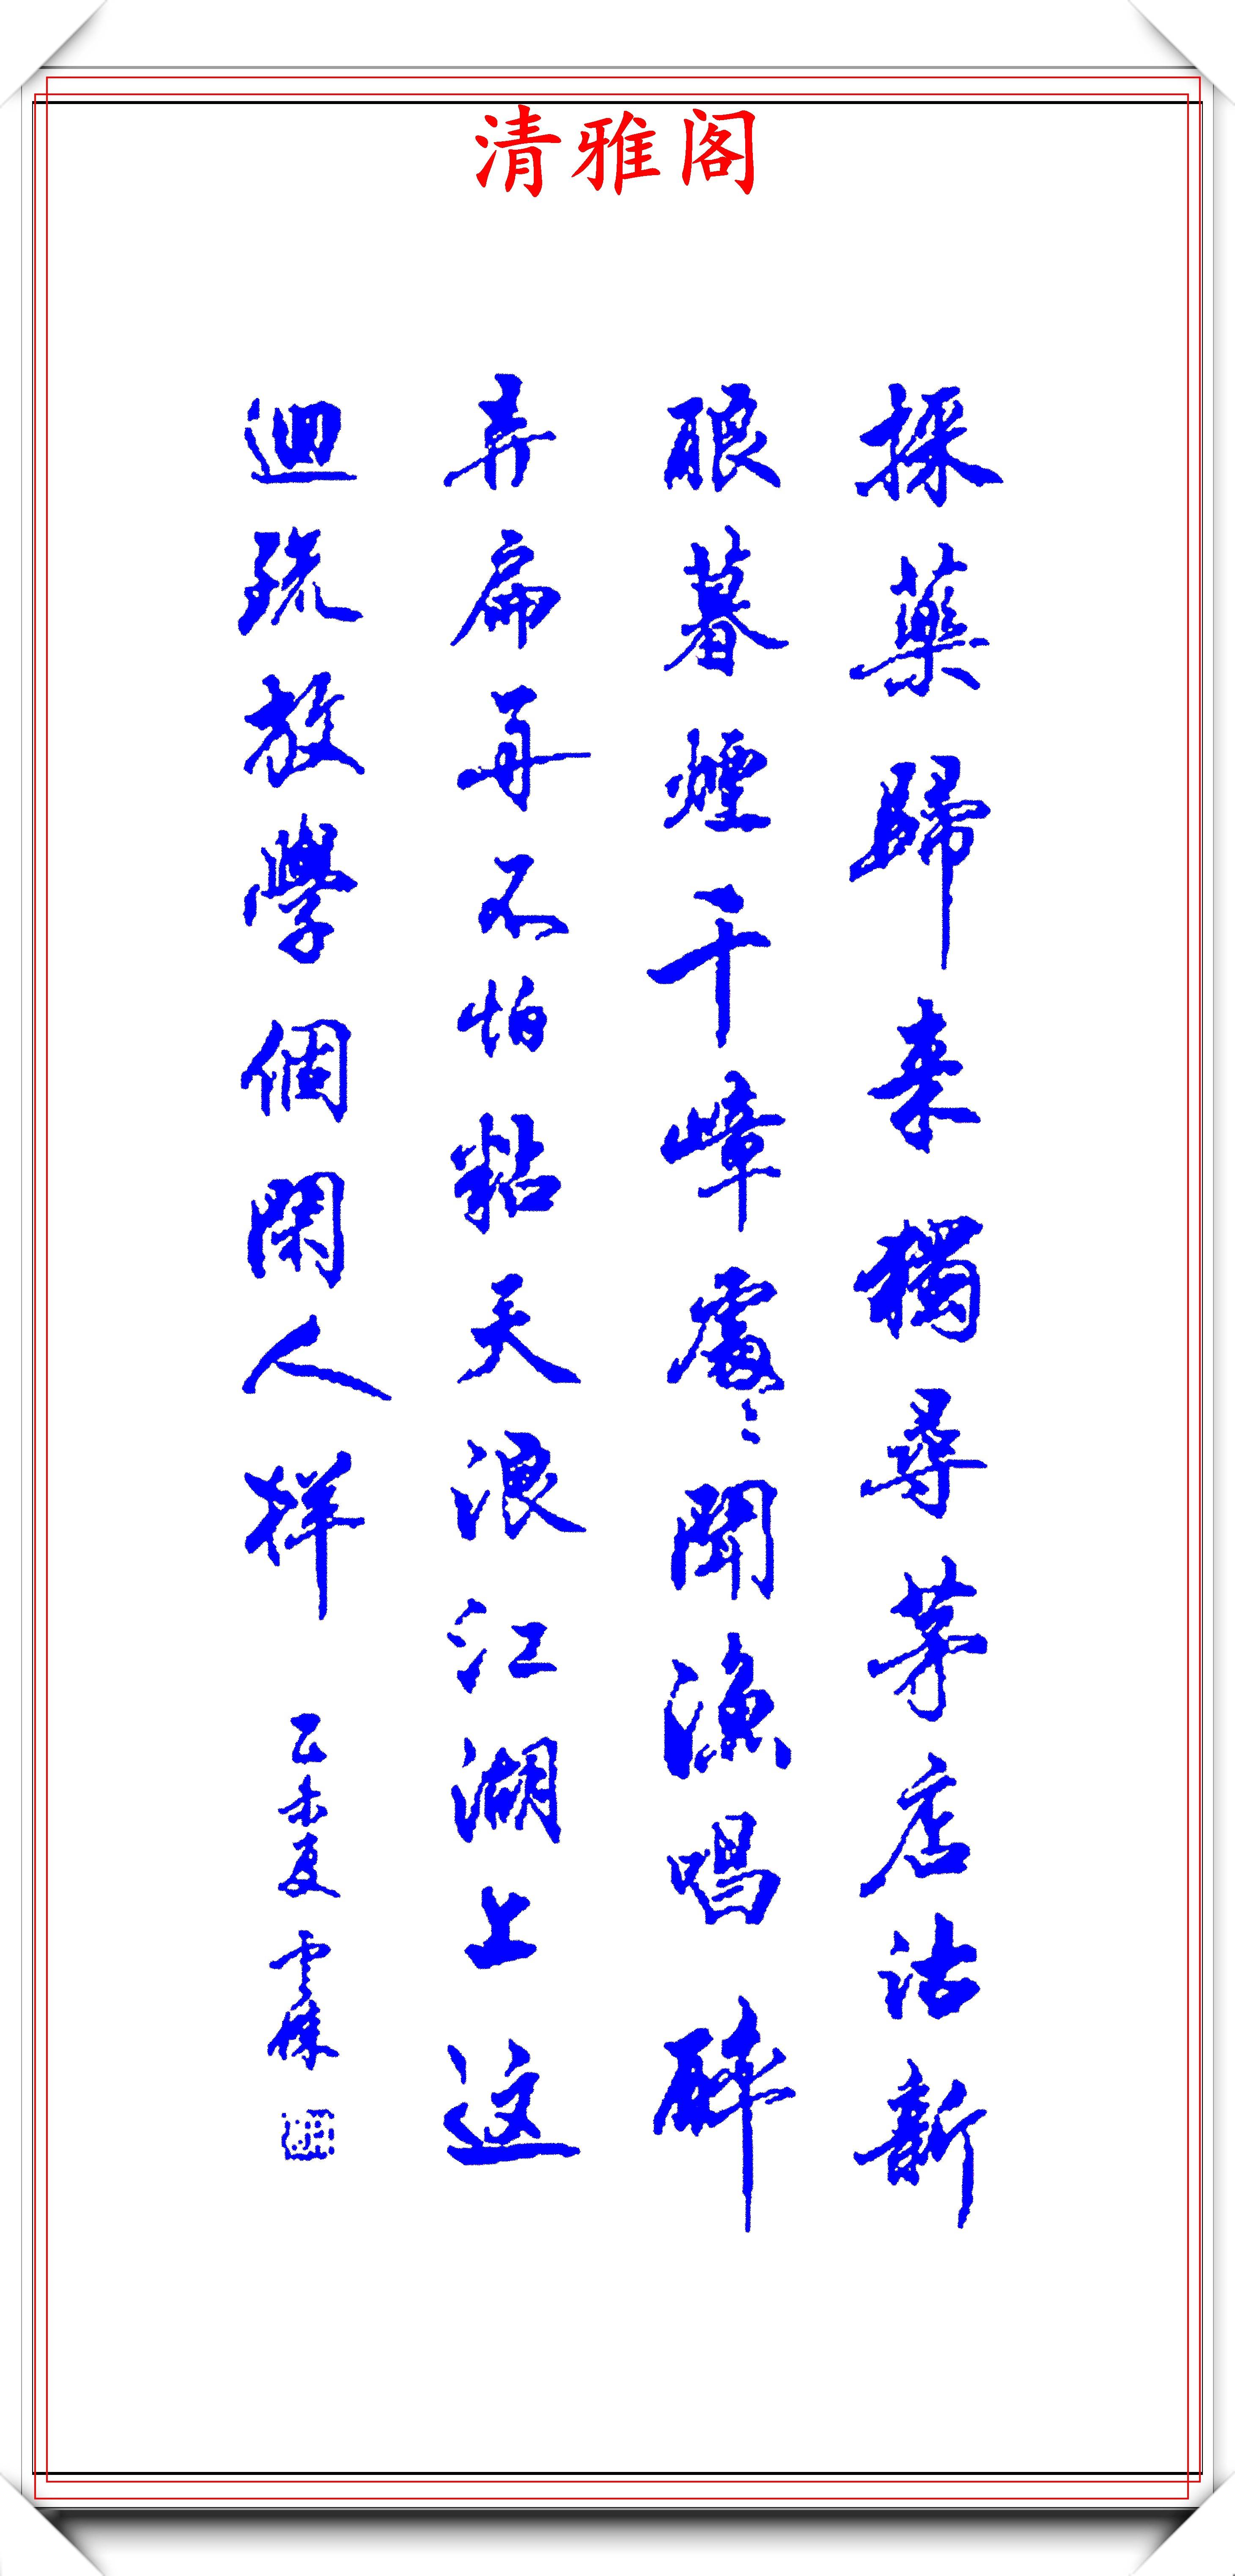 清雅阁
採藥歸来獨尋茅店沽新
釀暮煙千嶂處々聞漁唱醉
弄扁舟不怕粘天浪江湖上这
迴疏放學個閑人样
乙未夏雲